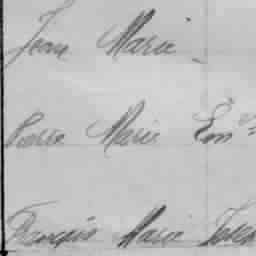 Jean Marie
Pierre Marie Em
François Marie